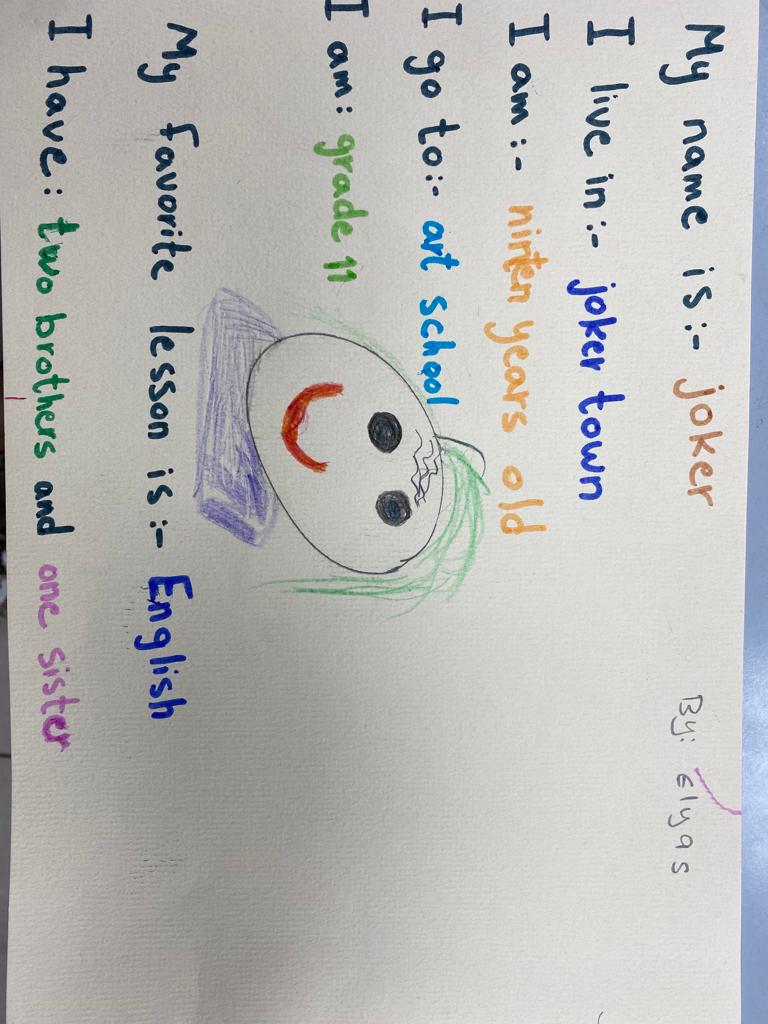 My name is:- joker
By: Elyas
I live in:- joker town
I am:- ninten years old
I go to:- art school
I am: grade 11
My favorite lesson is:- English
I have: two brothers and one sister